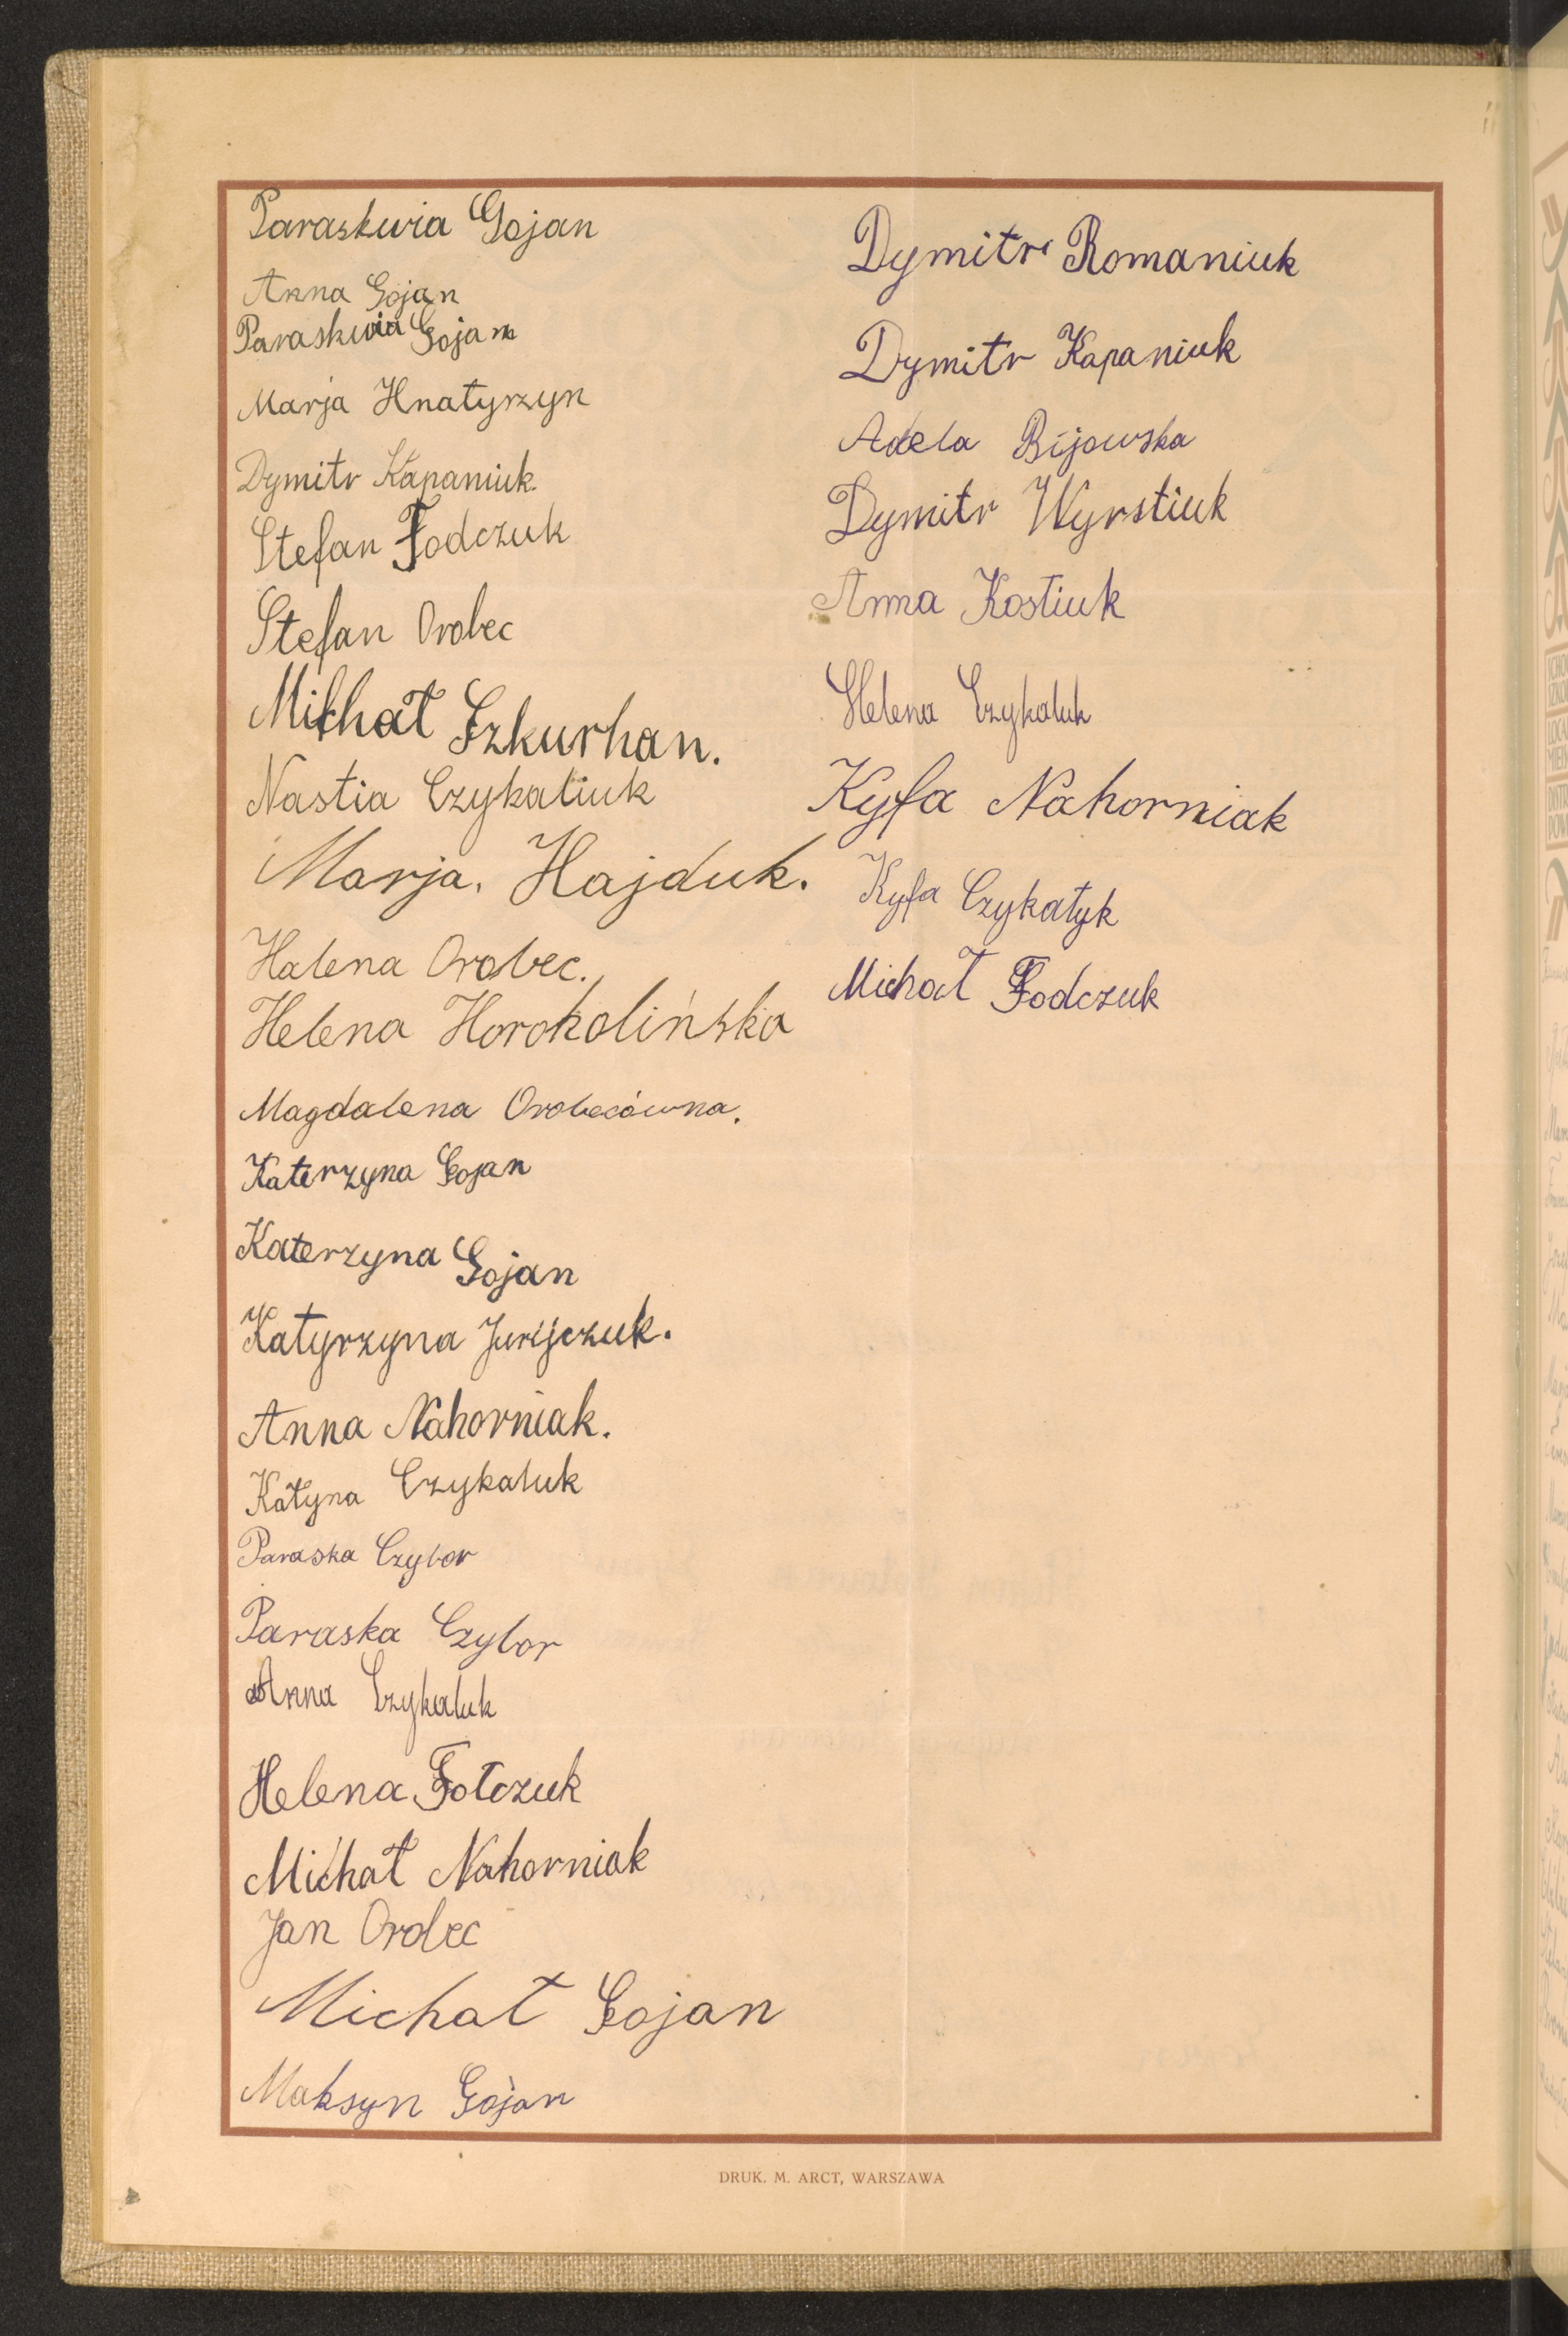 Paraskwia Gojan
Anna Gojan
Paraskwia Gojan
Marja Hnatyrzyn
Dymitr Kapaniuk
Stefan Fodczuk
Stefan Orobec
Michał Szkurhan.
Nastia Czykaliuk
Marja. Hajduk.
Halena Orobec.
Helena Horokolińska
Magdalena Orobecówna.
Katerzyna Gojan
Katerzyna Gojan
Katyrzyna Jurijczuk.
Anna Nahorniak.
Katyna Czykaluk
Paraska Czybor
Paraska Czybor
Anna Czykaluk
Helena Fotczuk
Michał Nahorniak
Jan Orobec
Michał Gojan
Maksyn Gojan
Dymitr Romaniuk
Dymitr Kapaniuk
Adela Bijowska
Dymitr Wyrstiuk
Anna Kostiuk
Helena Czykaluk
Kyfa Nahorniak
Kyfa Czykałyk
Michał Fodczuk
DRUK. M. ARCT, WARSZAWA